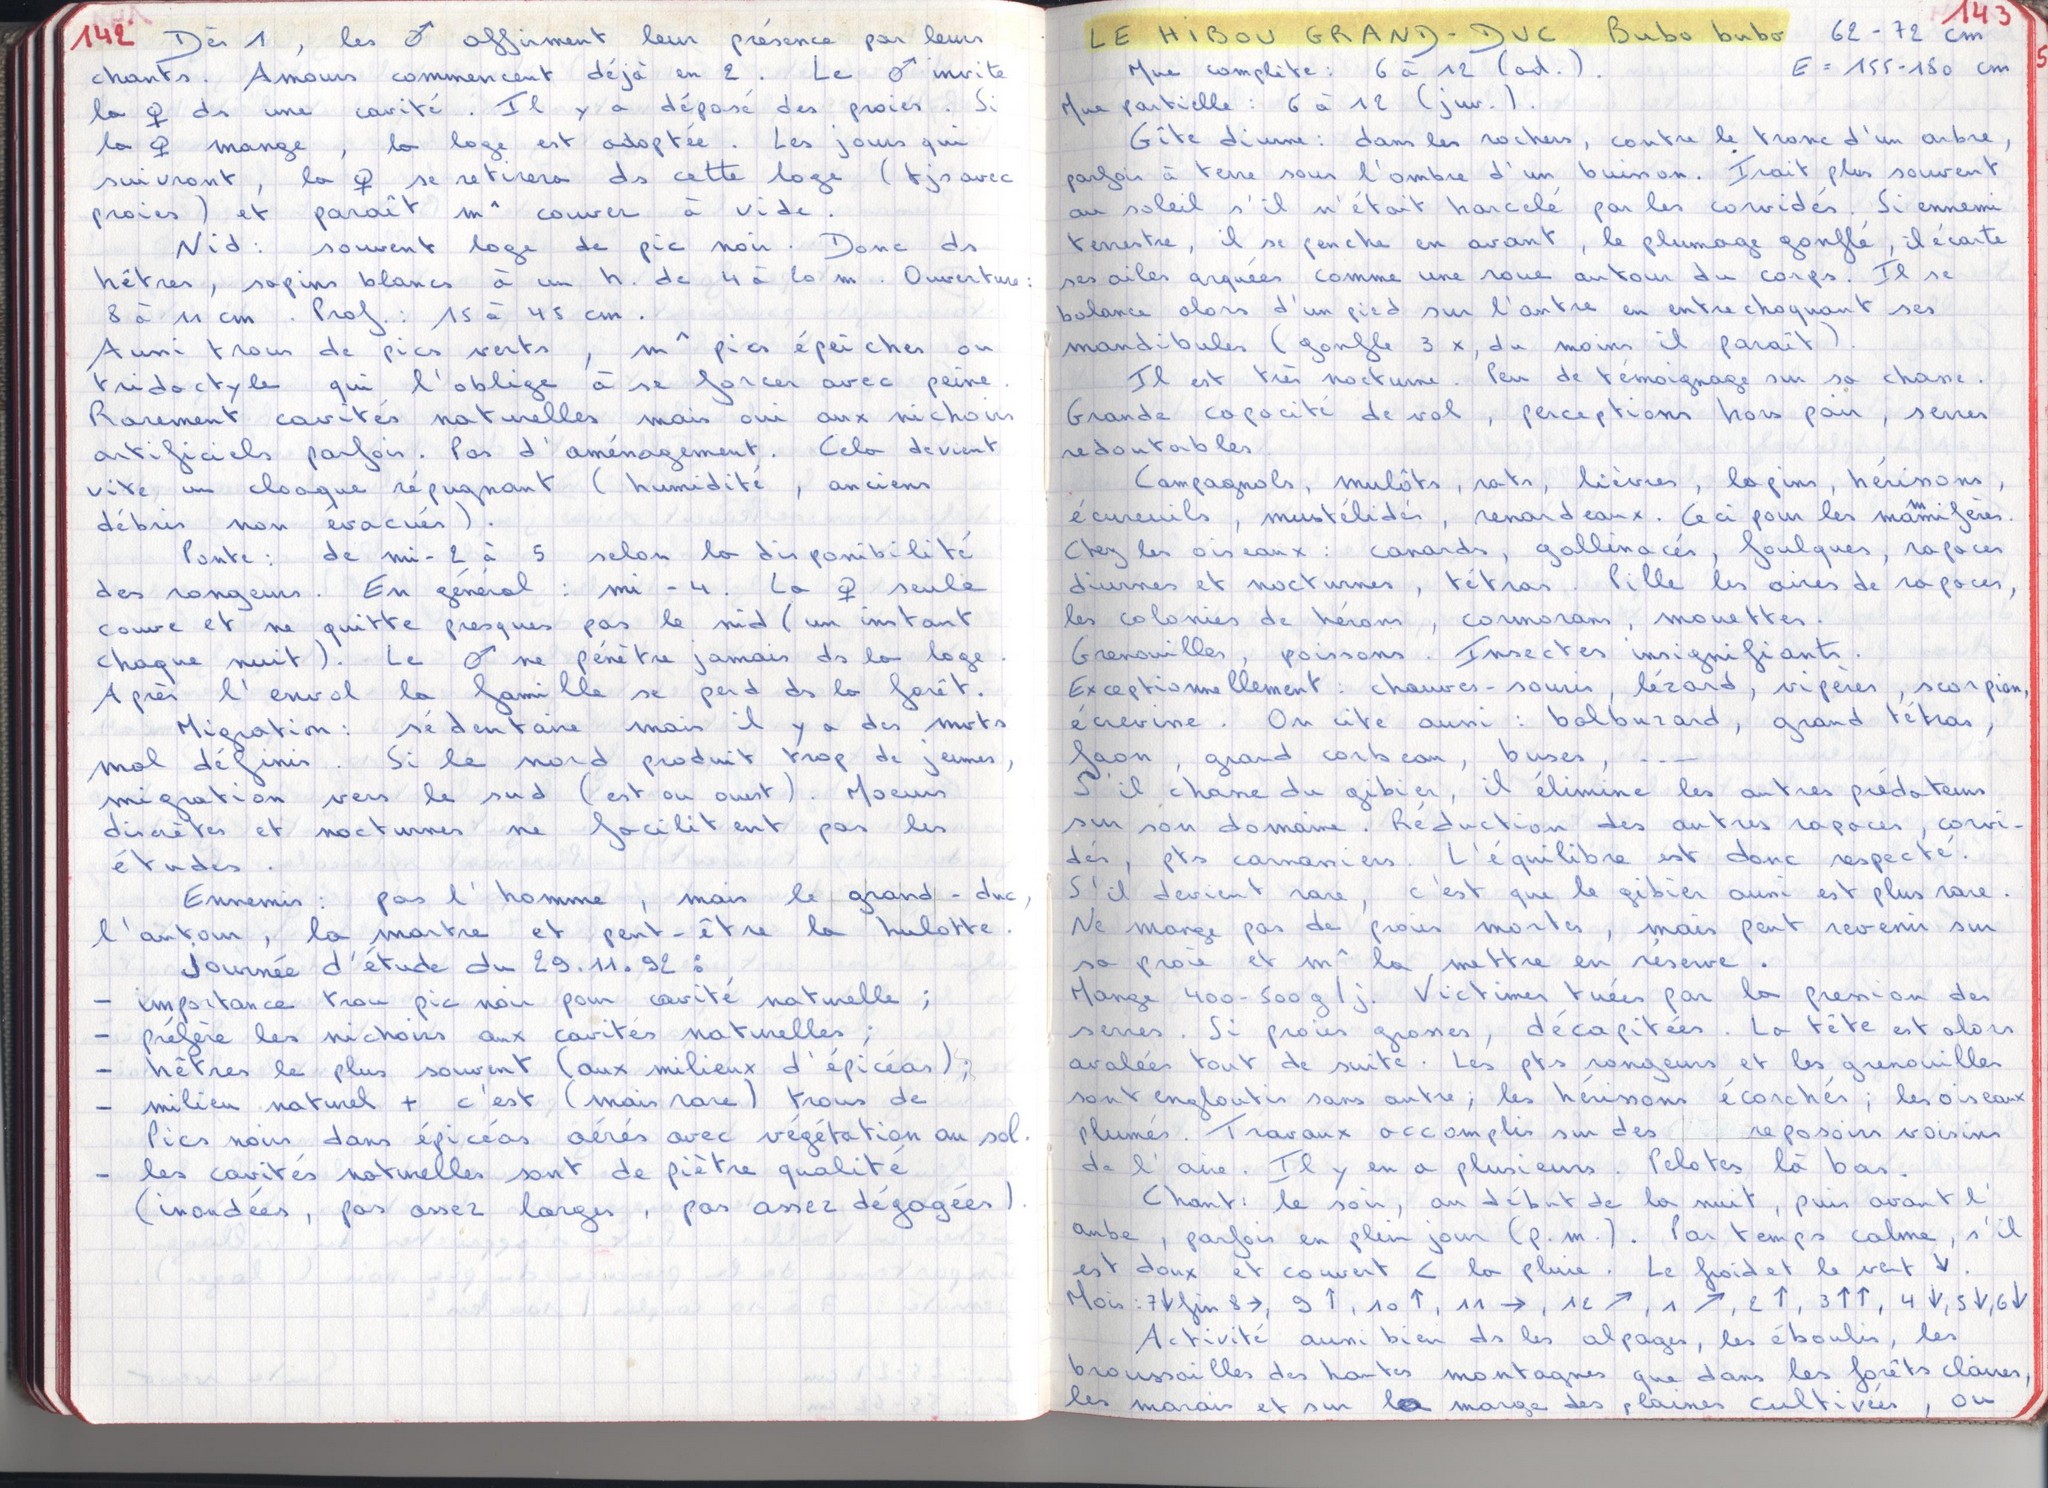 142 Dès 1, les ♂ affirment leur présence par leurs
chants. Amours commencent déjà en 2. Le ♂ invite
la ♀ ds une cavité. Il y a déposé des proies. Si
la ♀ mange, la loge est adoptée. Les jours qui
suivront, la ♀ se retirera ds cette loge (tjs avec
proies) et paraît m^ couver à vide.
Nid: souvent loge de pic noir. Donc ds
hêtres, sapins blancs à un h. de 4 à 20 m. Ouverture:
8 à 11 cm. Prof.: 15 à 45 cm.
Aussi trous de pics verts, m^ pics épeiches ou
tridactyle qui l'oblige à se forcer avec peine.
Rarement cavités naturelles mais oui aux nichoirs
artificiels parfois. Pas d'aménagement. Cela devient
vite un cloaque répugnant (humidité, anciens
débris non évacués).
Ponte: de mi-2 à 5 selon la disponibilité
des rongeurs. En général: mi-4. La ♀ seule
couve et ne quitte presques pas le nid (un instant
chaque nuit). Le ♂ ne pénètre jamais ds la loge.
Après l'envol la famille se perd ds la forêt.
Migration: sédentaire mais il y a des mvts
mal définis. Si le nord produit trop de jeunes,
migration vers le sud (est ou ouest). Moeurs
discrètes et nocturnes ne facilitent pas les
études.
Ennemis: pas l'homme, mais le grand-duc,
l'autour, la martre et peut-être la hulotte.
Journée d'étude du 29.11.92:
- importance trou pic noir pour cavité naturelle;
- préfère les nichoirs aux cavités naturelles;
- hêtres le plus souvent (aux milieux d'épicéas);
- milieu naturel + c'est (mais rare) trous de
Pics noirs dans épicéas aérés avec végétation au sol.
- les cavités naturelles sont de piètre qualité
(inondées, pas assez larges, pas assez dégagées).
143
LE HIBOU GRAND-DUC Bubo bubo 62-72 cm
Mue complète: 6 à 12 (ad.). E = 155-180 cm
Mue partielle: 6 à 12 (juv.).
Gîte diurne: dans les rochers, contre le tronc d'un arbre,
parfois à terre sous l'ombre d'un buisson. Irait plus souvent
au soleil s'il n'était harcelé par les corvidés. Si ennemi
terrestre, il se penche en avant, le plumage gonflé, il écarte
ses ailes arquées comme une roue autour du corps. Il se
balance alors d'un pied sur l'autre en entrechoquant ses
mandibules (gonfle 3 x, du moins il paraît).
Il est très nocturne. Peu de témoignage sur sa chasse.
Grande capacité de vol, perceptions hors pair, serres
redoutables.
Campagnols, mulôts, rats, lièvres, lapins, hérissons,
écureuils, mustélidés, renardeaux. Ceci pour les mammifères.
Chez les oiseaux: canards, gallinacés, foulques, rapaces
diurnes et nocturnes, tétras. Pille les aires de rapaces,
les colonies de hérons, cormorans, mouettes.
Grenouilles, poissons. Insectes insignifiants.
Exceptionnellement: chauves-souris, lézard, vipères, scorpion,
écrevisse. On cite aussi: balbuzard, grand tétras,
faon, grand corbeau, buses, ...
S'il chasse du gibier, il élimine les autres prédateurs
sur son domaine. Réduction des autres rapaces, corvi-
dés, pts carnassiers. L'équilibre est donc respecté.
S'il devient rare, c'est que le gibier aussi est plus rare.
Ne mange pas de proies mortes, mais peut revenir sur
sa proie et m^ la mettre en réserve.
Mange 400-500g/j. Victimes tuées par la pression des
serres. Si proies grosses, décapitées. La tête est alors
avalées tout de suite. Les pts rongeurs et les grenouilles
sont engloutis sans autre; les hérissons écorchés; les oiseaux
plumés. Travaux accomplis sur des reposoirs voisins
de l'aire. Il y en a plusieurs. Pelotes là bas.
Chant: le soir, au début de la nuit, puis avant l'
aube, parfois en plein jour (p.m.). Par temps calme, s'il
est doux et couvert < la pluie. Le froid et le vent ↓.
Mois: 7↓ fin 8→, 9↑, 10↑, 11→, 12↗, 1↗, 2↑, 3↑↑, 4↓, 5↓, 6↓
Activité aussi bien ds les alpages, les éboulis, les
broussailles des hautes montagnes que dans les forêts claires,
les marais et sur la marge des plaines cultivées, ou